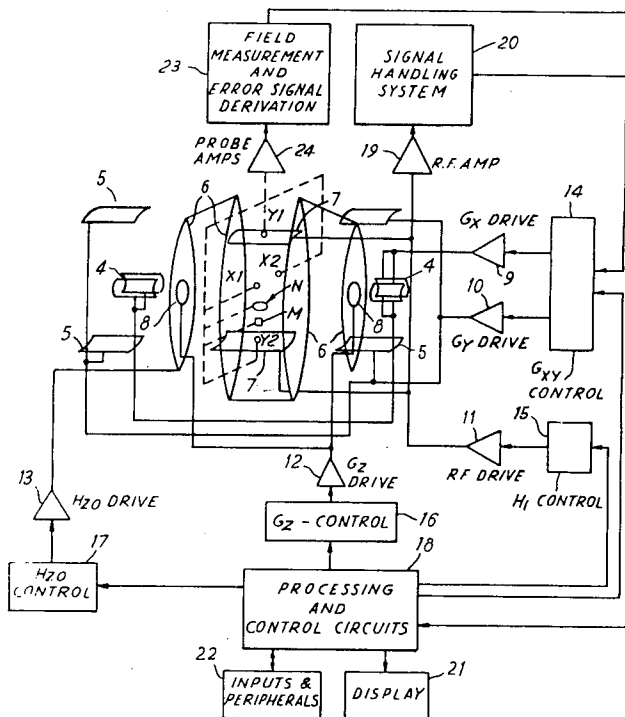 23
FIELD
MEASUREMENT
AND
ERROR SIGNAL
DERIVATION
SIGNAL
HANDLING
SYSTEM
20
PROBE
AMPS
24
19
R.F. AMP
5
6
Y1
7
14
4
X1
X2
N
M
8
4
8
GX DRIVE
9
10
GY DRIVE
GXY
CONTROL
5
Y2
7
6
5
11
15
RF DRIVE
H1 CONTROL
12
GZ
DRIVE
13
HZO DRIVE
GZ - CONTROL
16
17
HZO
CONTROL
18
PROCESSING
AND
CONTROL CIRCUITS
22
INPUTS &
PERIPHERALS
DISPLAY
21